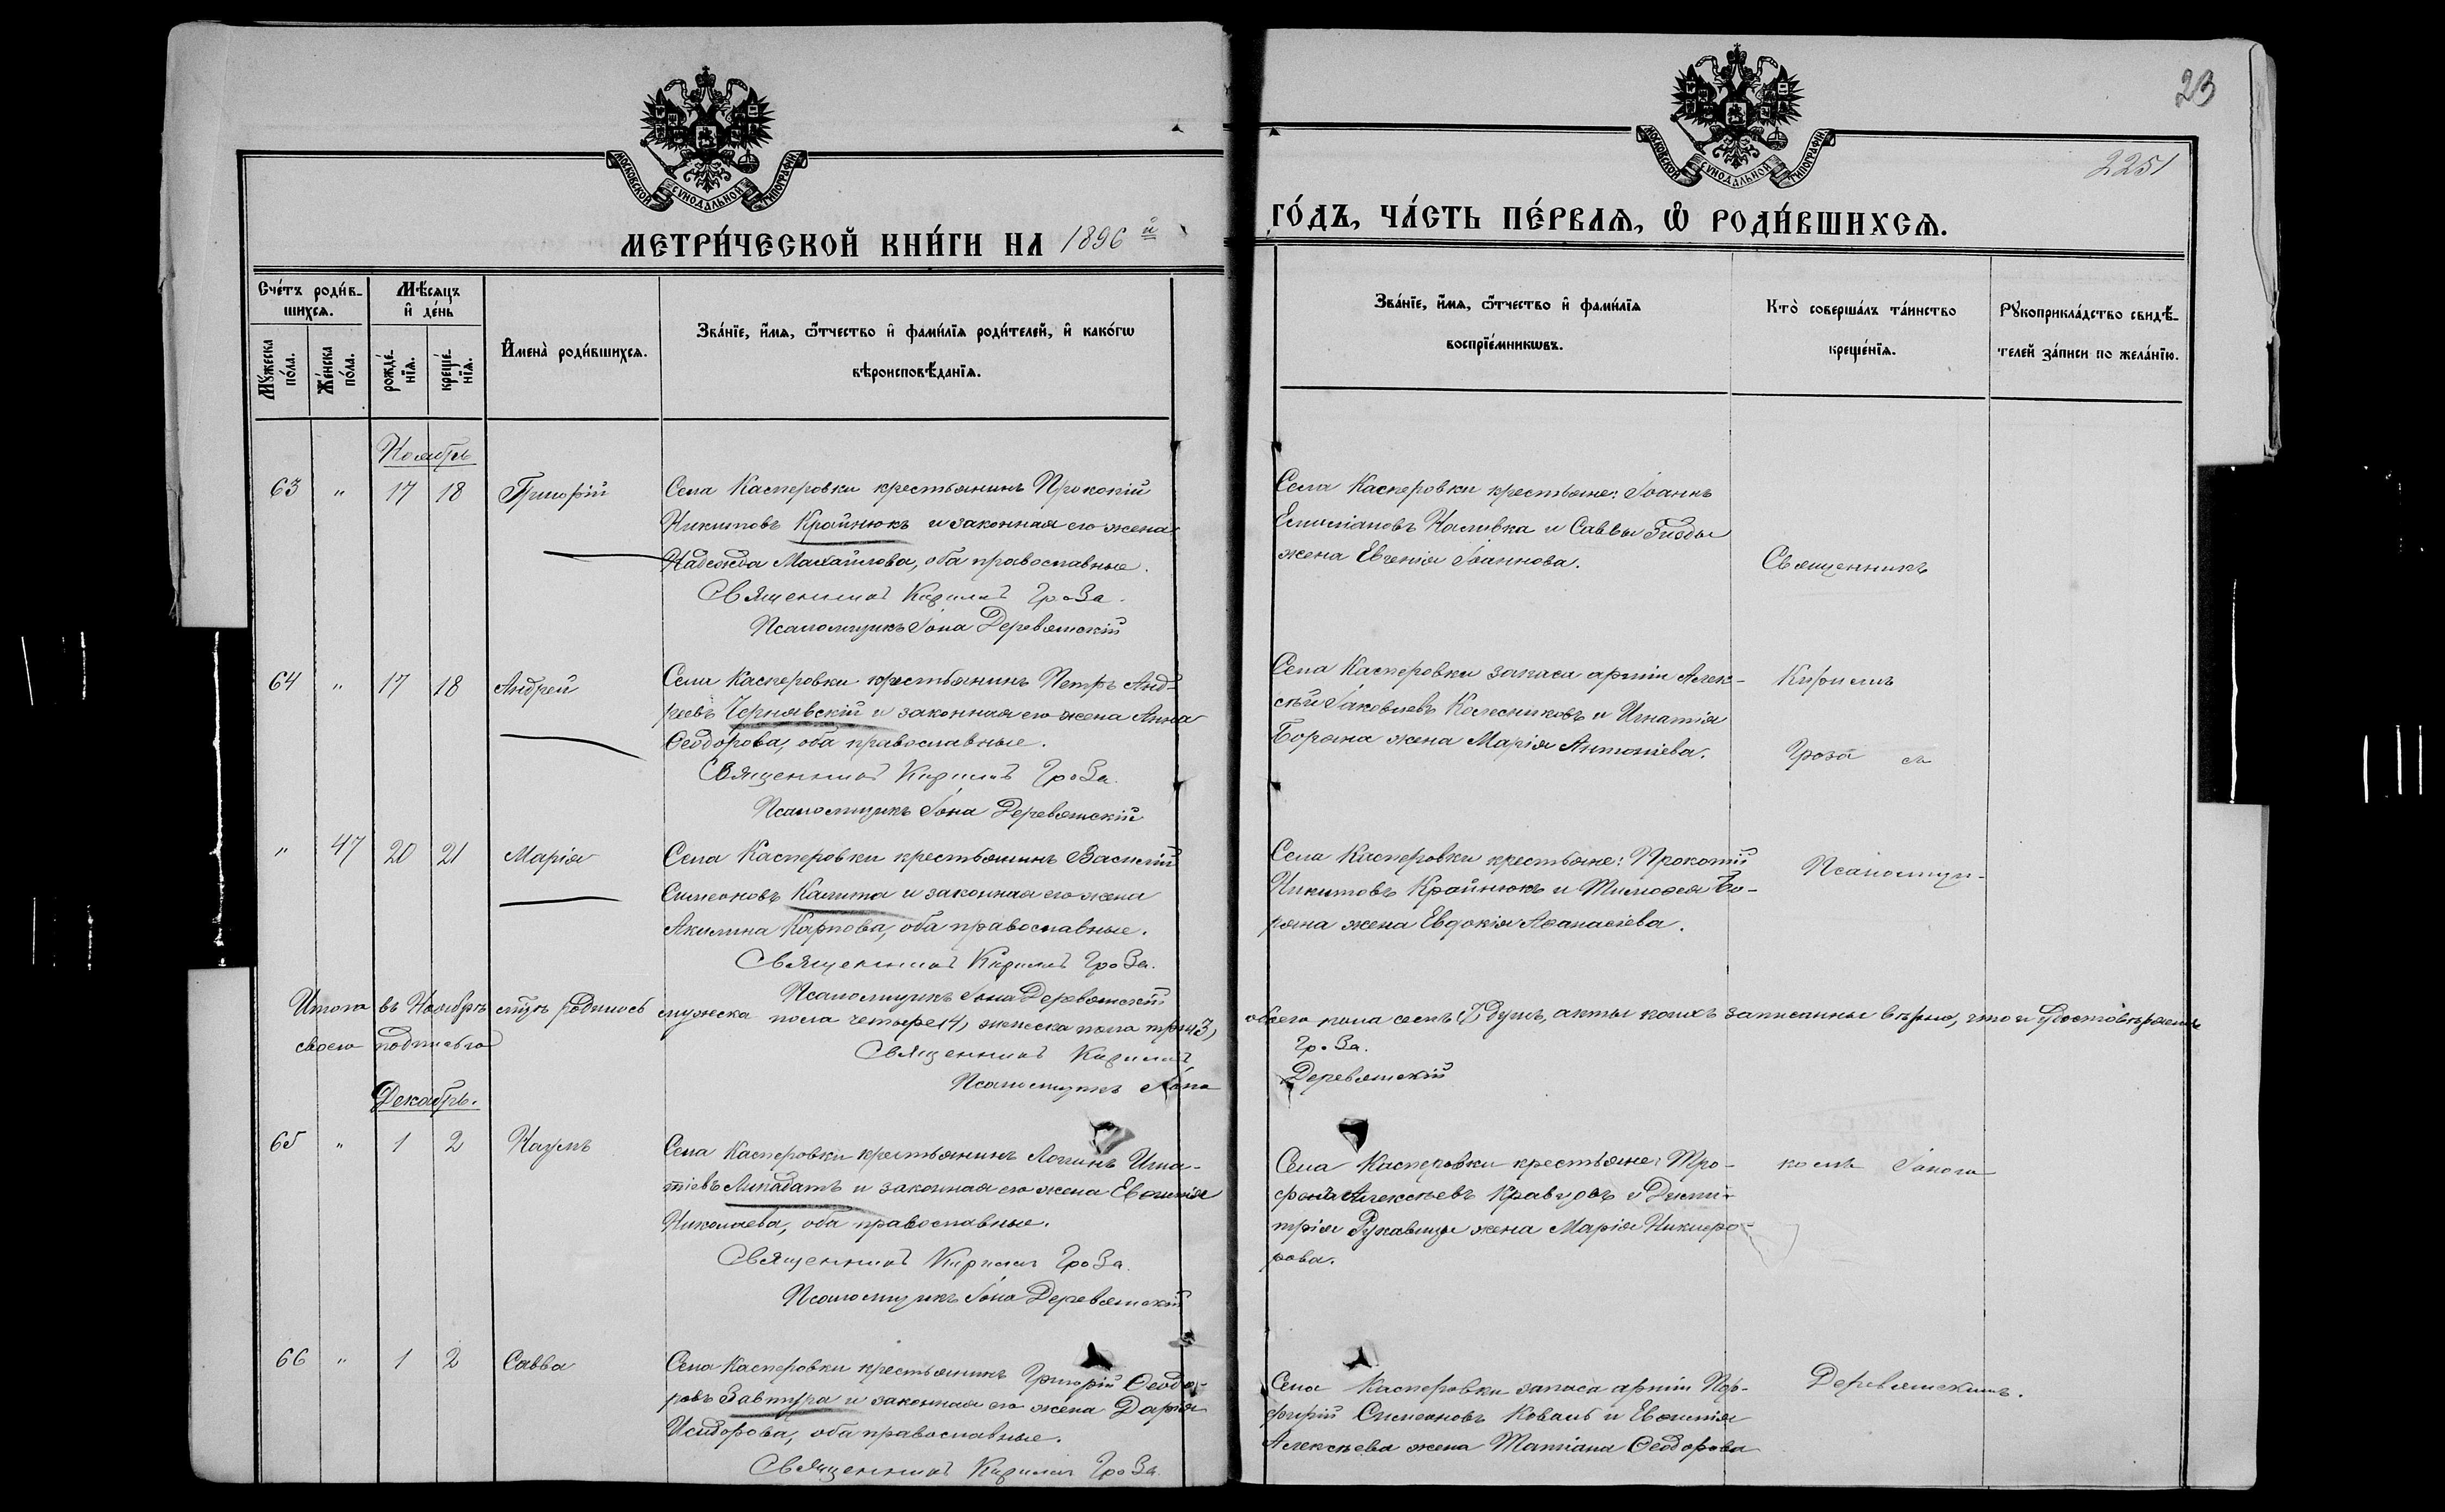 23
2251
МОСКОВСКОЙ СѴНОДАЛЬНОЙ ТИПОГРАФІИ
МОСКОВСКОЙ СѴНОДАЛЬНОЙ ТИПОГРАФІИ
МЕТРИ́ЧЕСКОЙ КНИ́ГИ НА 1896й
ГО́ДЪ, ЧА́СТЬ ПЕ́РВАѦ, Ѽ РОДИ́ВШИХСѦ.
Сче́тъ роди́в-
шихсѧ.
Мꙋ́жеска по́ла.
Же́нска по́ла.
Мѣ́сѧцъ
и҆ де́нь
рожде́-
нїѧ.
креще́-
нїѧ.
И҆мена̀ роди́вшихсѧ.
Зва́нїе, и҆́мѧ, ѻ҆́тчество и҆ фами́лїѧ роди́телей, и҆ како́гѡ
вѣроисповѣ́данїѧ.
Зва́нїе, и҆́мѧ, ѻ҆́тчество и҆ фами́лїѧ
воспрїе́мникѡвъ.
Кто̀ соверша́лъ та́инство
креще́нїѧ.
Рꙋкоприкла́дство свидѣ́-
телей за́писи по жела́нїю.
Ноябрь
63 " 17 18 Григорій
Села Касперовки крестьянинъ Прокопій
Никитовъ Крайнюкъ и законная его жена
Надежда Михайлова, оба православные.
Священникъ Кириллъ Гроза.
Псаломщикъ Іона Деревянскій
Села Касперовки крестьяне: Іоаннъ
Наливка и Саввы
жена Евгенія Іоаннова.
Священникъ
64 " 17 18 Андрей
Села Касперовки крестьянинъ Петръ Анд-
реевъ Чернявскій и законная его жена Анна
Ѳеодорова, оба православные.
Священникъ Кириллъ Гроза.
Псаломщикъ Іона Деревянскій
Села Касперовки запаса арміи Алек-
сѣй Іаковлевъ Колесниковъ и Игнатія
Боряна жена Марія Антоніева.
Кириллъ
Гроза съ
" 47 20 21 Марія
Села Касперовки крестьянинъ Василій
Симеоновъ Калита и законная его жена
Акилина Карпова, оба православные.
Священникъ Кириллъ Гроза.
Псаломщикъ Іона Деревянскій
Села Касперовки крестьяне: Прокопій
Никитовъ Крайнюкъ и Тимоѳея Бо-
ряна жена Евдокія Аѳанасіева.
Псаломщи-
Итого въ Ноябрѣ м-цѣ родилось мужеска пола четыре (4), женска пола три (3), обоего пола семь (7) душъ, акты коихъ записанны вѣрно, что и удостовѣряемъ
своею подписью
Священникъ Кириллъ Гроза.
Псаломщикъ Іона Деревянскій
Декабрь.
65 " 1 2 Наумъ
Села Касперовки крестьянинъ Логгинъ Игна-
тіевъ и законная его жена Евѳимія
Николаева, оба православные.
Священникъ Кириллъ Гроза.
Псаломщикъ Іона Деревянскій
Села Касперовки крестьяне: Тро-
фимъ Алексѣевъ Кравчукъ и Дими-
трія Рукавицы жена Марія Никиѳо-
рова.
комъ Іоною
66 " 1 2 Савва
Села Касперовки крестьянинъ Григорій Ѳеодо-
ровъ Завтура и законная его жена Дарія
Исидорова, оба православные.
Священникъ Кириллъ Гроза.
Села Касперовки запаса арміи Пор-
фирій Симеоновъ Коваль и Евѳимія
Алексѣева жена Татіана Ѳеодорова
Деревянскимъ.